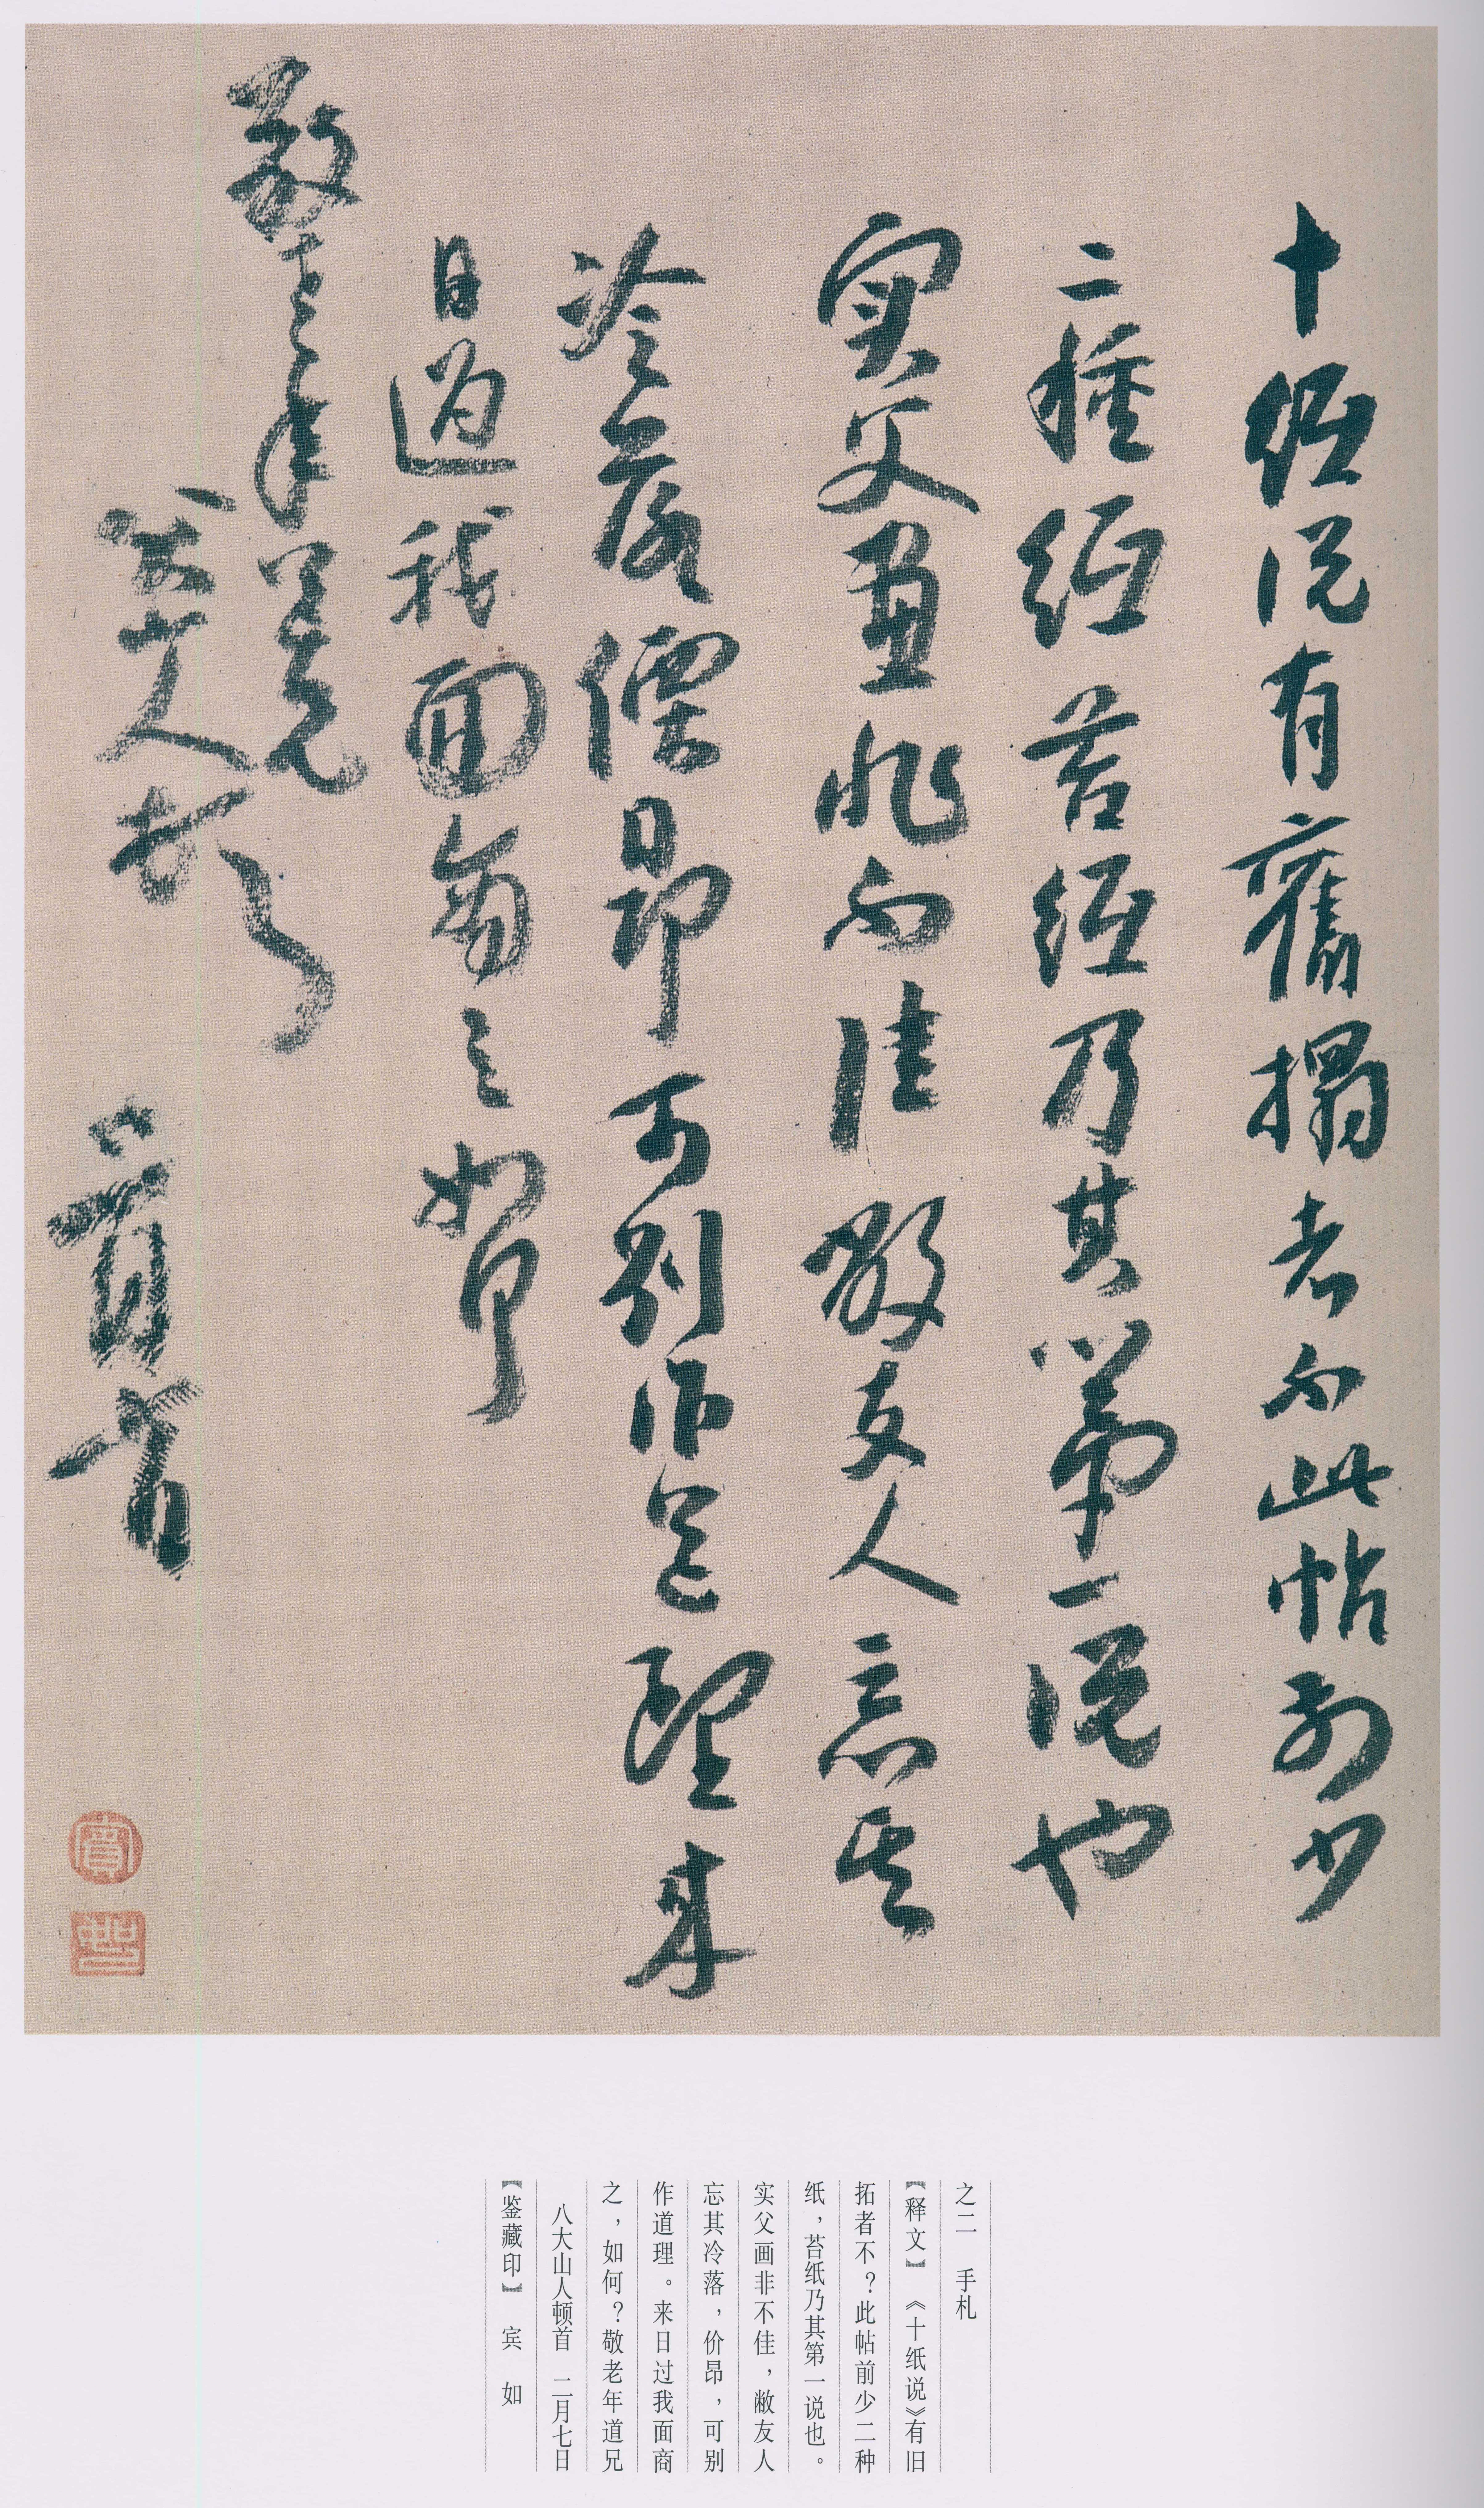 十纸说有舊搨者不此帖前少
二種纸苔纸乃其第一说也
实父画非不佳敝友人忘其
冷落價昂可别作道理来
日過我面商之如何
敬老年道兄
八大山人
頓首
之二　手札
【释文】　《十纸说》有旧
拓者不？此帖前少二种
纸，苔纸乃其第一说也。
实父画非不佳，敝友人
忘其冷落，价昂，可别
作道理。来日过我面商
之，如何？敬老年道兄
八大山人顿首　二月七日
【鉴藏印】　宾　如